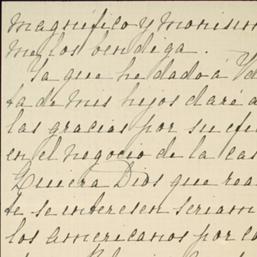 magnífico y monísim
me los bendiga.
Ya que he dado á V
ta de mis hijos daré á
las gracias por su efi
en el negocio de la cas
Quiera Dios que rea
te se interesen seriam
los americanos por co